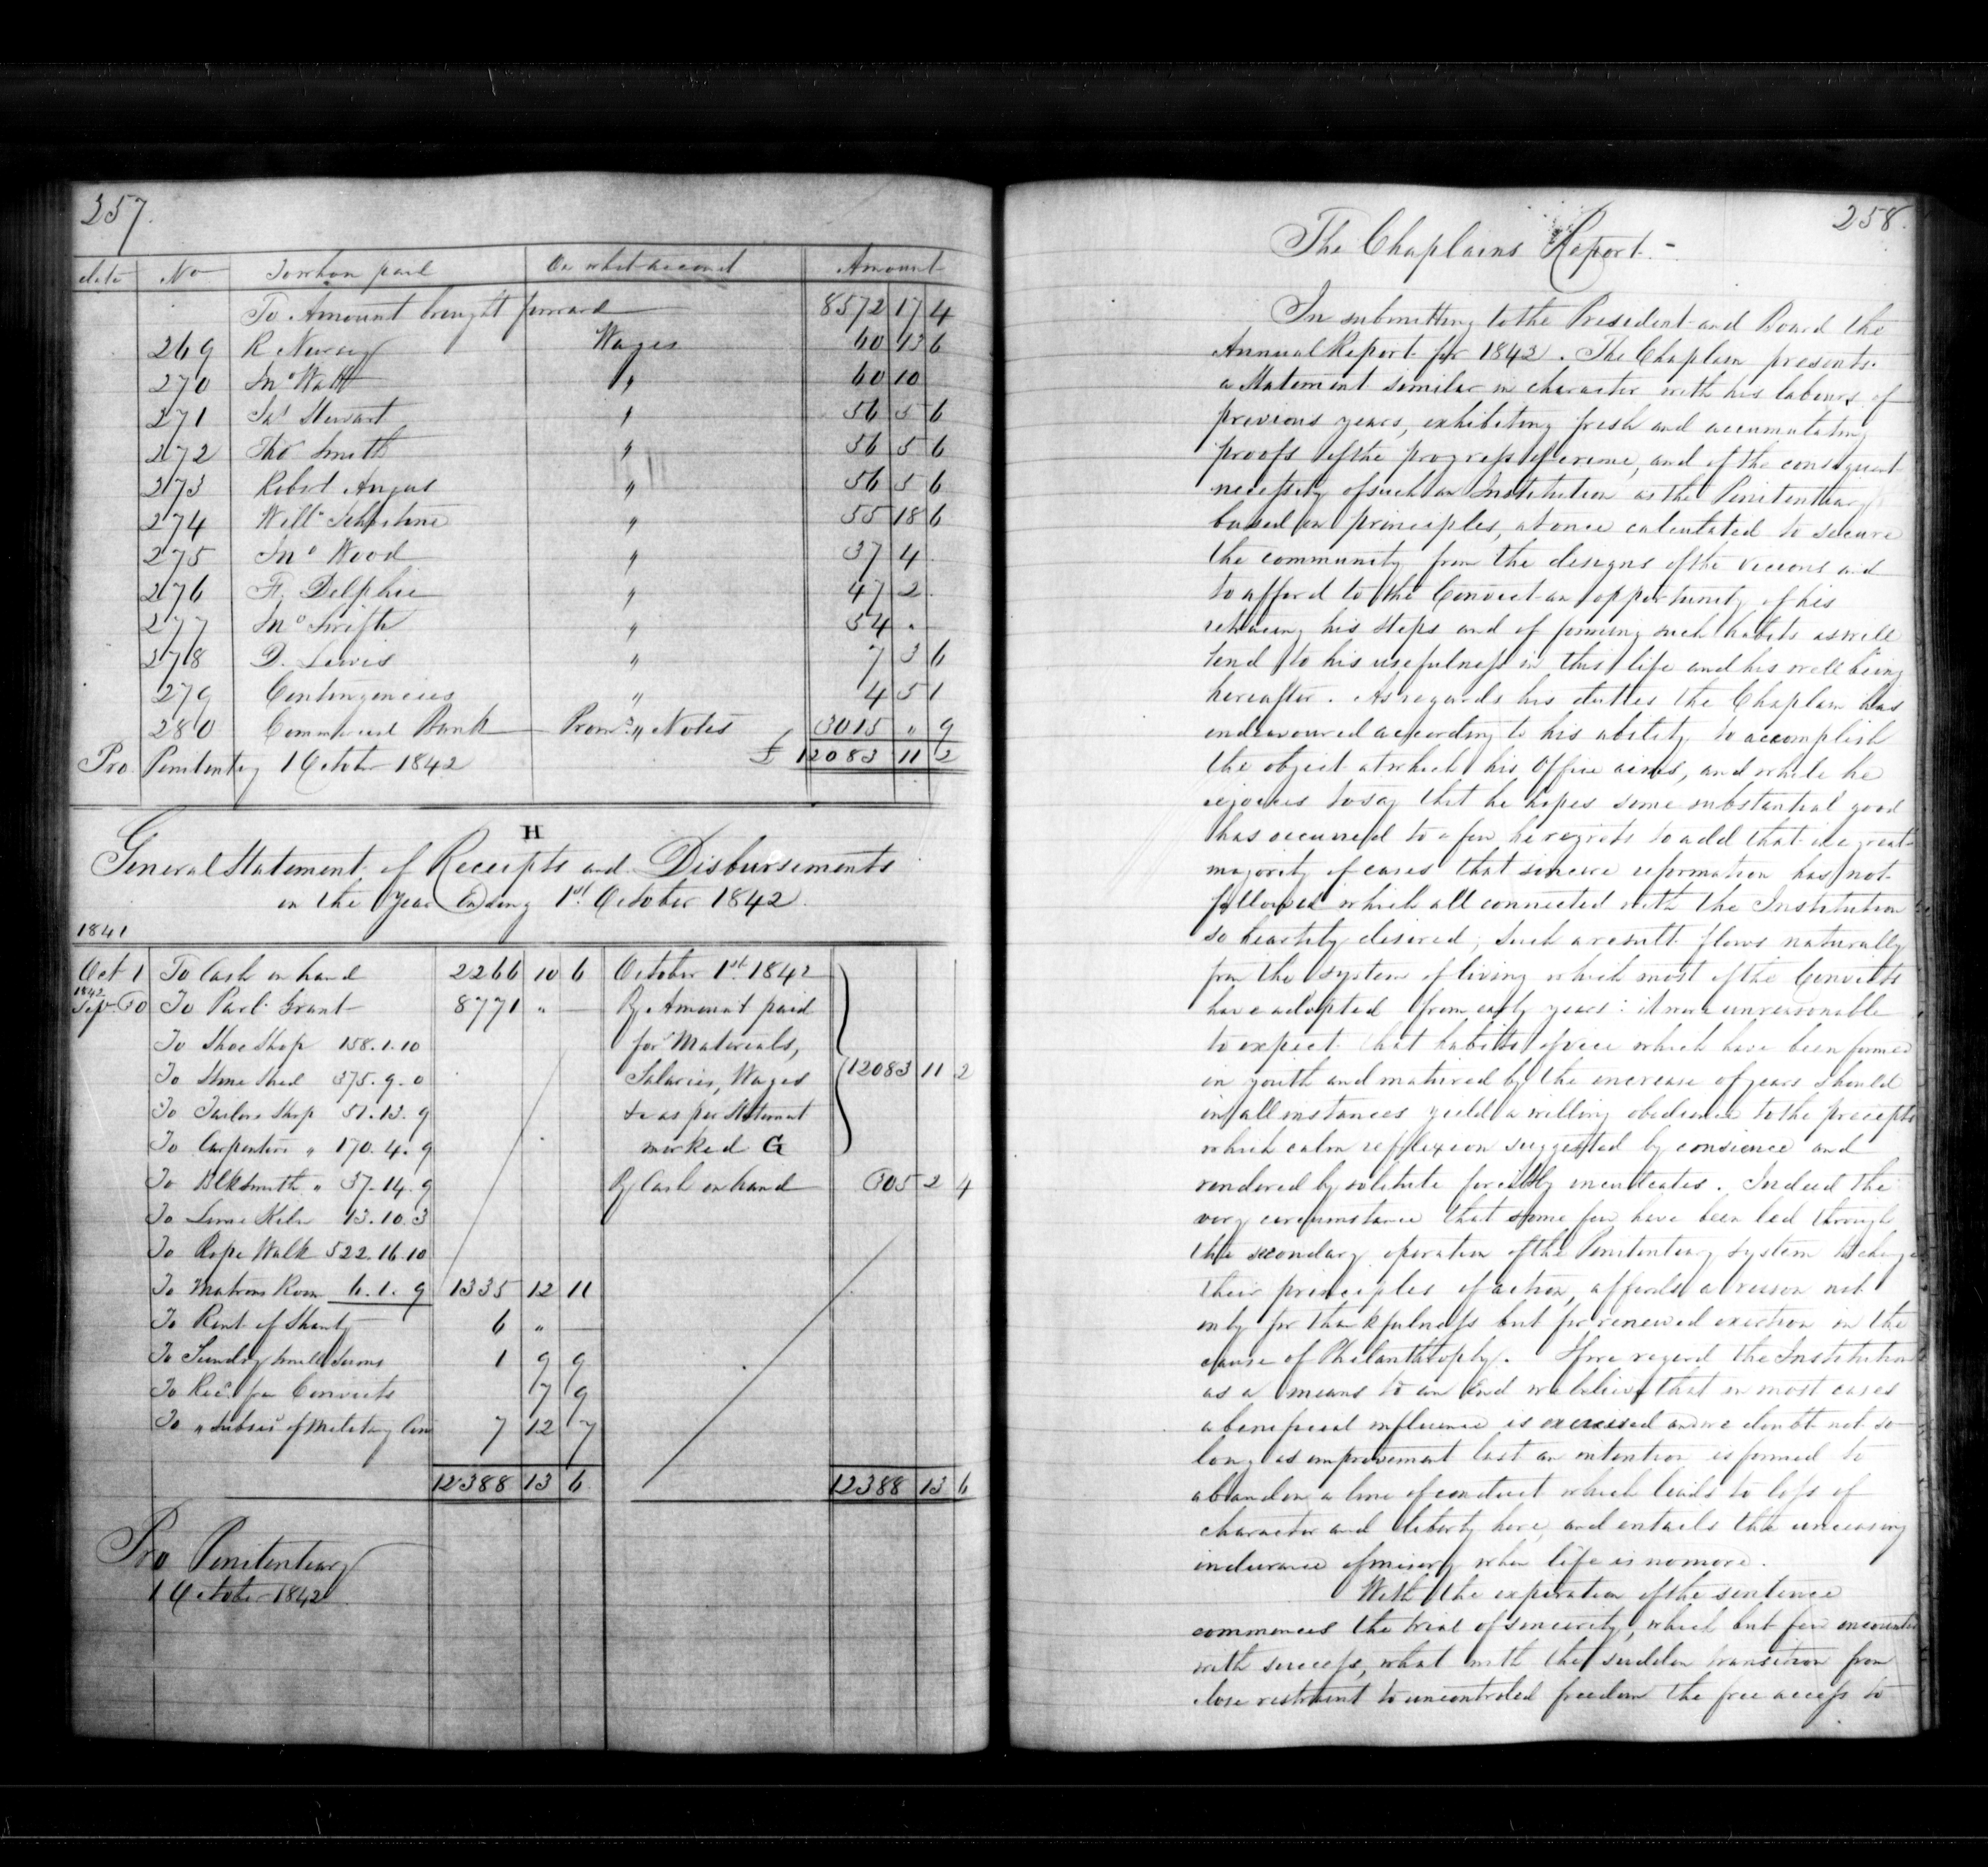 257.
date No To whom paid On what account Amount
To Amount brought forward 8572 17 4
269 R Nursey Wages 60 13 6
270 Jno Watt " 60 10
271 Jas Stewart " 56 5 6
272 Thos Smith " 56 5 6
273 Robert Angus " 56 5 6
274 Willm Johnstone " 55 18 6
275 Jno Wood " 37 4
276 F. Delphie " 47 2
277 Jno Swift " 54 "
278 D. Lewis " 7 3 6
279 Contingencies " 4 5 1
280 Commercial Bank Promy Notes 3015 " 9
Pro Penitentry 1 October 1842 £ 12083 11 2
H
General Statement of Receipts and Disbursements
in the Year Ending 1st October 1842.
1841
Oct 1 To Cash on hand 2266 10 6 October 1st 1842
1842
Sept 30 To Parl. Grant 8771 " — By Amount paid
To Shoe Shop 158. 1. 10 for Materials,
To Stone Shed 375. 9. 0 Salaries, Wages 12083 11 2
To Tailors Shop 51. 13. 9 &c as per Statement
To Carpenters " 170. 4. 9 marked G
To Blksmith " 37. 14. 9 By Cash on hand 305 2 4
To Lime Kiln 13. 10. 3
To Rope Walk 522. 16. 10
To Matrons Room 6. 1. 9 1335 12 11
To Rent of Shanty 6 " —
To Sundry small Sums 1 9 9
To Recd. for Convicts 7 9
To " Subsis. of Military Con 7 12 7
12388 13 6 12388 13 6
Pro Penitentiary
1 October 1842
258.
The Chaplains Report.-
In submitting to the President and Board the
Annual Report for 1842. The Chaplain presents
a Statement similar in character with his labours of
previous years, exhibiting fresh and accumulating
proofs of the progress of crime, and of the consequent
necessity of such an Institution as the Penitentiary
based on principles, at once calculated to secure
the community from the designs of the vicious and
to afford to the Convict an opportunity of his
retracing his steps and of forming such habits as will
tend to his usefulness in this life and his well being
hereafter. As regards his duties the Chaplain has
endeavoured according to his ability to accomplish
the object at which his Office aims, and while he
rejoices to say that he hopes some substantial good
has occurred to a few he regrets to add that in the great
majority of cases that sincere reformation has not
followed which all connected with the Institution
so heartily desired; Such a result flows naturally
from the system of living which most of the Convicts
have adopted from early years: it were unreasonable
to expect that habits of vice which have been formed
in youth and matured by the increase of years should
in all instances yield a willing obedience to the precepts
which calm reflexion suggested by consience and
rendered by solitute forcibly inculcates. Indeed the
very circumstance that some few have been led through
the secondary operation of the Penitentiary System to change
their principles of action, affords a reason not
only for thankfulness but for renewed exertion in the
cause of Philanthrophy. If we regard the Institution
as a means to an End we believe that in most cases
a beneficial influence is excercised and we doubt not so
long as improvement last an intention is formed to
abandon a line of conduct which leads to loss of
character and liberty here, and entails the unceasing
indurance of misery when life is no more.
With the experation of the sentence
commences the trial of sincerity, which but few encounter
with success, what with the sudden transition from
close restraint to uncontroled freedom the free access to